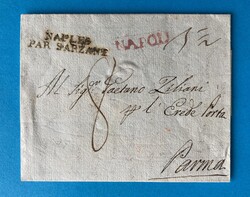 NAPLES
PAR SARZANE
NAPOLI
Al Sigr Gaetano Ziliani
Erede Porta
Parma